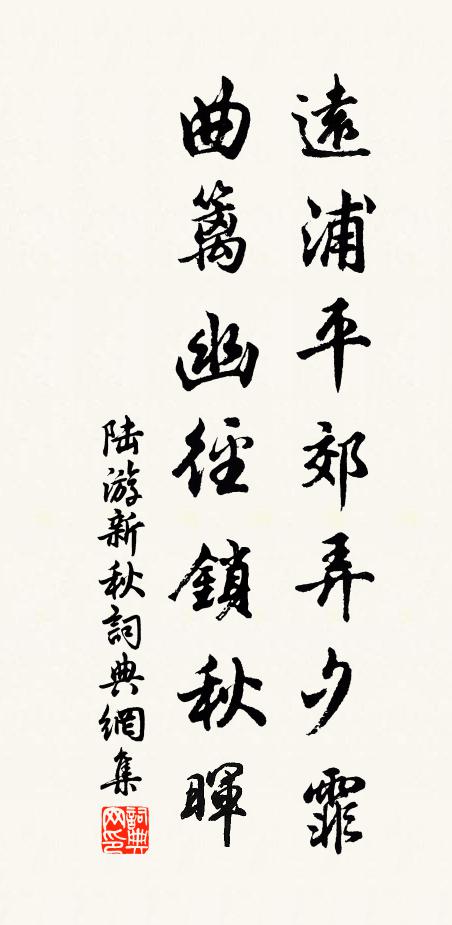 遠浦平郊弄夕霏
曲籬幽徑鎖秋暉
陆游新秋詞典網集
詞典网印